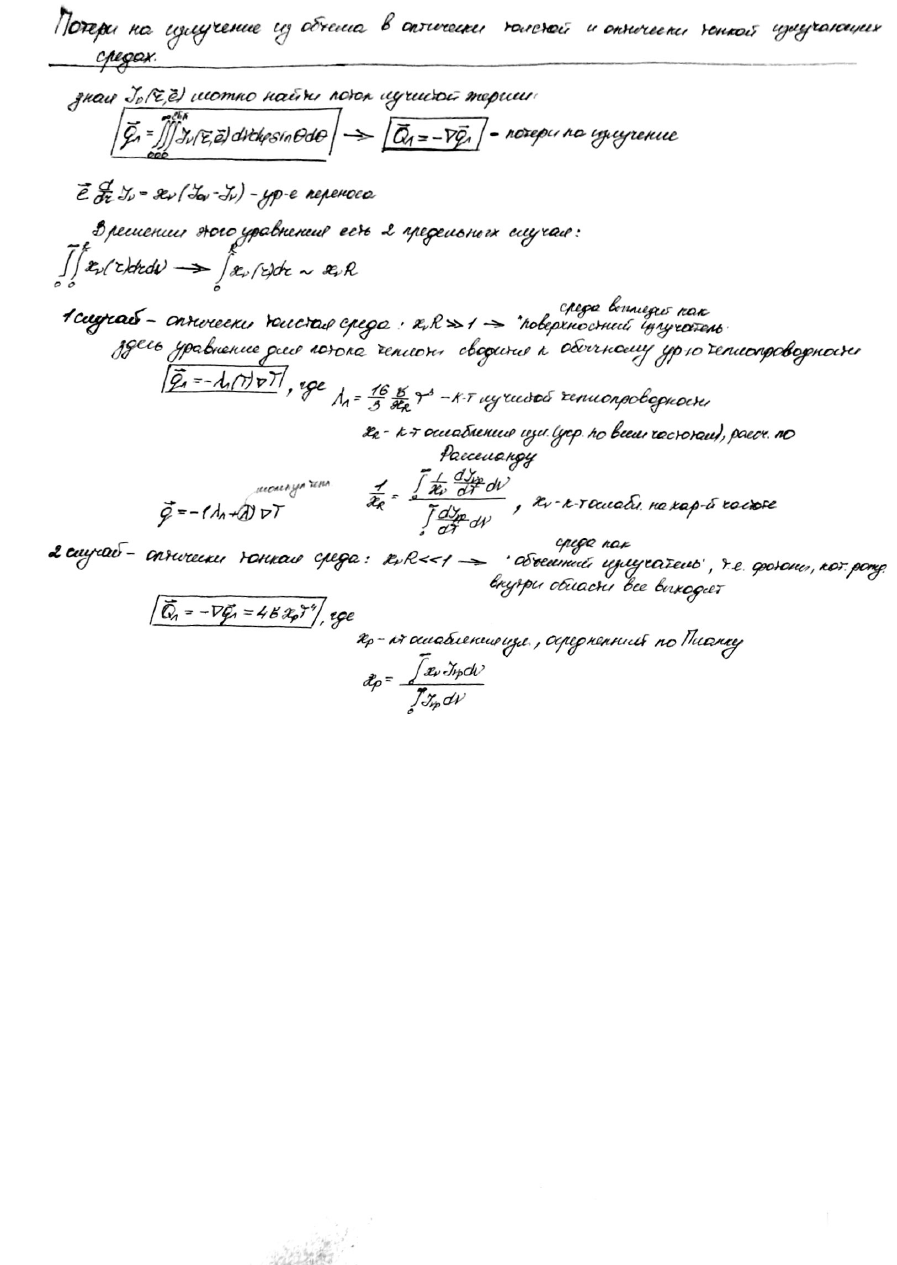 Потери на излучение из объема в оптически толстой и оптически тонкой излучающих
средах.
зная J_ν(r⃗,e⃗) можно найти поток лучистой энергии:
q⃗_л = ∫∫∫ J_ν(r⃗,e⃗) dν dφ sinθ dθ → Q⃗_л = -∇q⃗_л - потери на излучение
e⃗ d/dr J_ν = æ_ν (J_ων - J_ν) - ур-е переноса
В решении этого уравнения есть 2 предельных случая:
∫_0^∞ ∫_0^R æ_ν(r) dr dν → ∫_0^R æ_ν(r) dr ~ æ_ν R
1 случай - оптически толстая среда: æ_ν R ≫ 1 → среда выглядит как "поверхностный излучатель.
здесь уравнение для потока теплоты сводится к обычному ур-ю теплопроводности
q⃗_л = -λ_л(T) ∇T, где λ_л = 16/3 б/æ_R T³ - к-т лучистой теплопроводности
æ_R - к-т ослабления изл. (уср. по всем частотам), рассч. по
Росселанду
молекул. тепл
q⃗ = -(λ_л + λ) ∇T
1/æ_R = ∫_0^∞ 1/æ_ν dJ_νp/dT dν / ∫_0^∞ dJ_νp/dT dν, æ_ν - к-т ослабл. на кар-й частоте
2 случай - оптически тонкая среда: æ_ν R << 1 → среда как "объемный излучатель", т.е. фотоны, кот. рожд.
внутри области все выходят
Q⃗_л = -∇q⃗_л = 4б æ_p T⁴, где
æ_p - к-т ослабления изл., осредненный по Планку
æ_p = ∫_0^∞ æ_ν J_νp dν / ∫_0^∞ J_νp dν